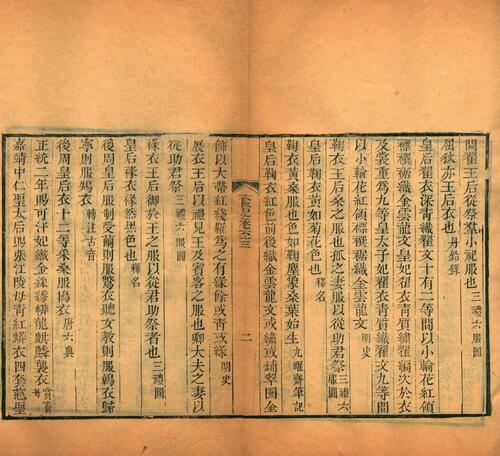 闕翟王后從祭羣小祀服也三禮六服圖
屈狄亦王后衣也丹鉛錄
皇后翟衣深靑織翟文十有二等間以小輪花紅領
褾襈裾織金雲龍文皇妃翟衣靑質繡翟編次於衣
及裳重爲九等皇太子妃翟衣靑質織翟文九等間
以小輪花紅領褾襈裾織金雲龍文明史
鞠衣王后桑之服也孤之妻服以從助君祭三禮六服圖
皇后鞠衣黃如菊花色也釋名
鞠衣黃桑服也色如鞠塵象桑葉始生九曜齋筆記
皇后鞠衣紅色前後織金雲龍文或繡或鋪翠圈金
飾以
二
飾以大帶紅綫羅爲之有緣餘或靑或綠明史
展衣王后以禮見王及賓客之服也卿大夫之妻以
從助君祭三禮六服圖
褖衣王后御於王之服以從君助祭者也三禮圖
皇后褖衣褖然黑色也釋名
後周皇后服制受繭則服鷩衣聽女教則服鵫衣歸
寧則服鴙衣轉注古音
後周皇后衣十二等采桑服鳪衣唐六典
正統二年賜可汗妃織金綵繡蟒龍麒麟襲衣
嘉靖中仁聖太后賜張江陵母靑紅蟒衣四套慈聖